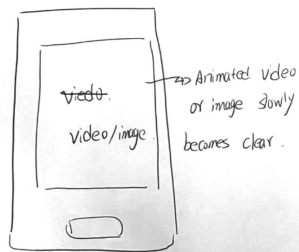 viedo.
video/image.
Animated video
or image slowly
becomes clear.